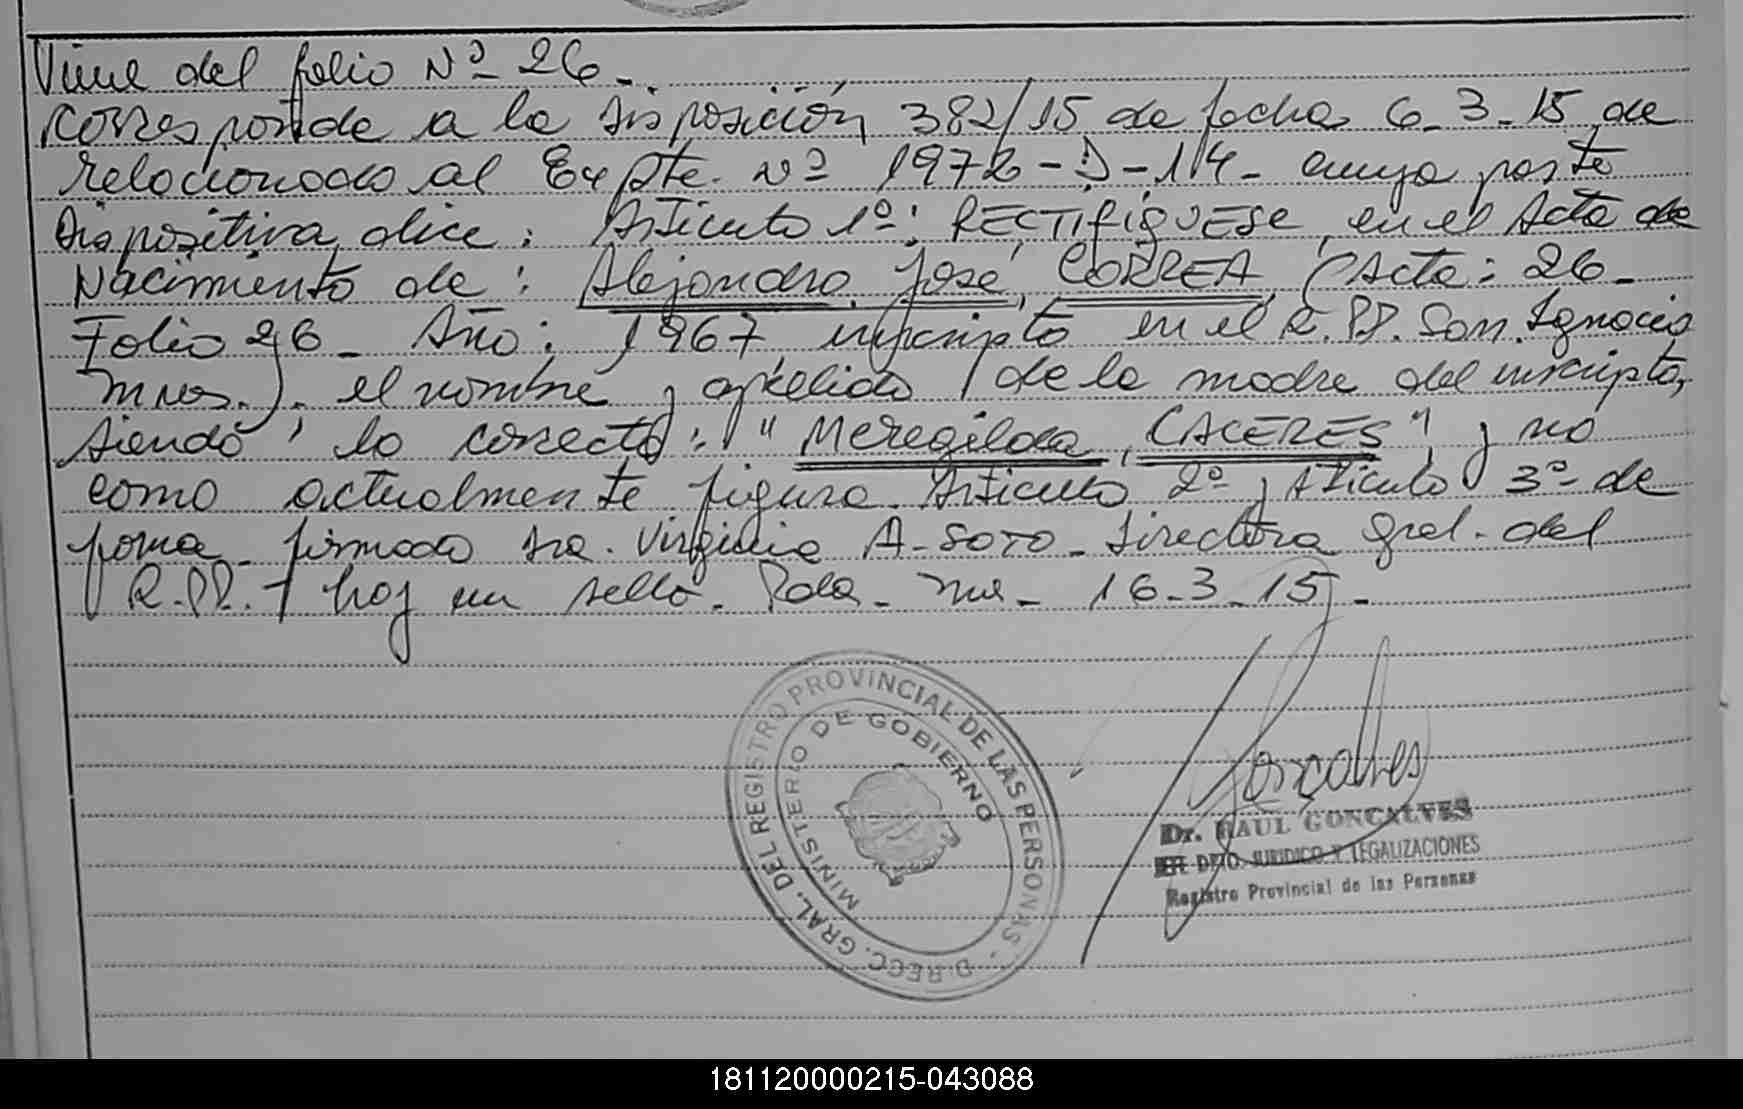 Viene del folio Nº 26.-
Corresponde a la disposición 382/15 de fecha 6-3-15 de
relacionado al Expte. Nº 1972-D-14- cuya parte
Dispositiva dice: Articulo 1º: RECTIFIQUESE, en el Acta de
Nacimiento de: Alejandro José CORREA (Acta: 26-
Folio 26- Año: 1967 inscripto en el R.PP. San Ignacio
Mnes.). el nombre y apellido de la madre del inscripto,
siendo lo correcto: "Meregilda CACERES" y no
como actualmente figura. Articulo 2º y Articulo 3º de
forma firmado Sra. Virginia A. SOTO- Directora Gral. del
R.PP.- hay un sello. Pdas. Mnes- 16-3-15.-
DIRECC. GRAL. DEL REGISTRO PROVINCIAL DE LAS PERSONAS
MINISTERIO DE GOBIERNO
Dr. RAUL GONCALVES
JEFE DPTO. JURIDICO Y LEGALIZACIONES
Registro Provincial de las Personas
181120000215-043088